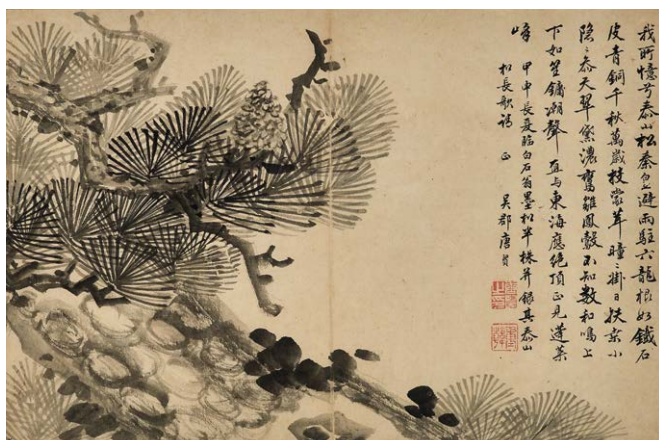 我所憶兮泰山松秦皇避雨駐六龍根如鐵石
皮青銅千秋萬歲枝蒙茸瞳〻掛日扶桒小
隱〻叅天翠黛濃鸞雛鳳鷇不知數和鳴上
下如笙鏞潮聲直与東海應絶頂正見蓬萊
峰
甲申長夏臨白石翁墨松半株并録其泰山
松長歌請 正 吳郡唐